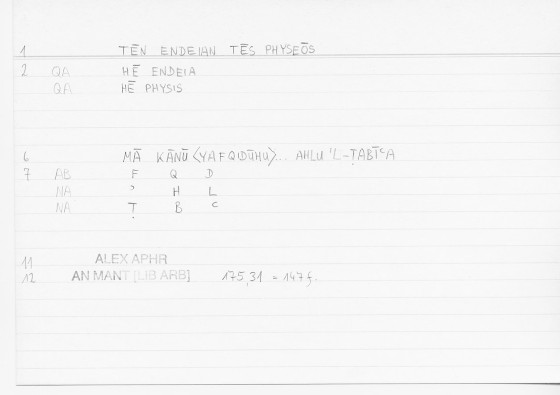 1 TĒN ENDEIAN TĒS PHYSEŌS
2 QA HĒ ENDEIA
QA HĒ PHYSIS
6 MĀ KĀNŪ <YAFQIDŪHU>... AHLU 'L-ṬABĪʿA
7 AB F Q D
NA ʾ H L
NA Ṭ B ʿ
11 ALEX APHR
12 AN MANT [LIB ARB] 175,31 = 147 f.